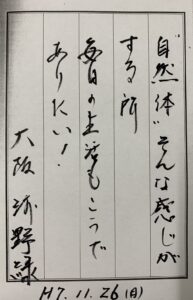 自然体〝そんな感じが
する所
毎日の生活もこうで
ありたい！
大阪 浦野
H7.11.26(日)